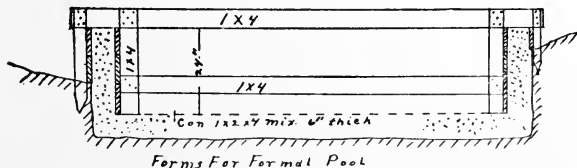 1 X 4
1 X 4
24"
1 X 4
Con 1x2x4 mix 6" thich
Forms For Formal Pool